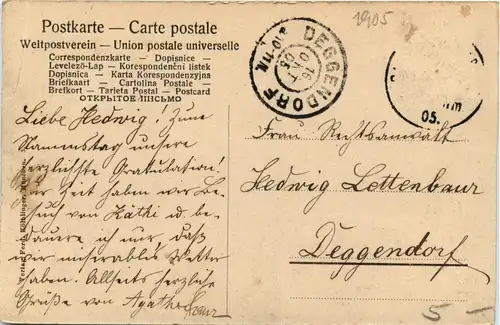 Postkarte — Carte postale
Weltpostverein — Union postale universelle
Correspondenzkarte - Dopisnice -
Levelező-Lap - Korespondenční listek
Dopisnica - Karta Korespondenzyjna
Briefkaart - Cartolina Postale -
Brefkort - Tarjeta Postal - Postcard
ОТКРЫТОЕ ПИСЬМО
1905
DEGGENDORF
16
OKT
05
05.
Liebe Hedwig! Zum
Namenstag unsere
herzlichste Gratulation!
Zur Zeit haben wir Be-
such von Käthi u. be-
dauere ich nur, daß
wir miserables Wetter
haben. Allseits herzliche
Grüße von Agathe
Frau Rechtsanwalt
Hedwig Lettenbaur
Deggendorf
5 —